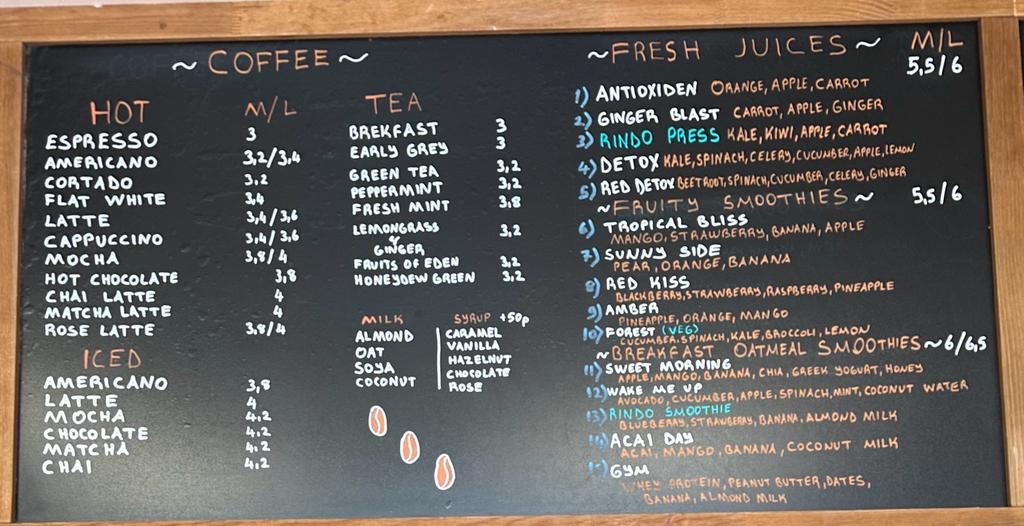 ~ COFFEE ~
HOT M/L
ESPRESSO 3
AMERICANO 3,2/3,4
CORTADO 3,2
FLAT WHITE 3,4
LATTE 3,4/3,6
CAPPUCCINO 3,4/3,6
MOCHA 3,8/4
HOT CHOCOLATE 3,8
CHAI LATTE 4
MATCHA LATTE 4
ROSE LATTE 3,8/4
ICED
AMERICANO 3,8
LATTE 4
MOCHA 4,2
CHOCOLATE 4,2
MATCHA 4,2
CHAI 4,2
TEA
BREKFAST 3
EARLY GREY 3
GREEN TEA 3,2
PEPPERMINT 3,2
FRESH MINT 3,8
LEMONGRASS 3,2
&
GINGER
FRUITS OF EDEN 3,2
HONEYDEW GREEN 3,2
MILK
ALMOND
OAT
SOYA
COCONUT
SYRUP +50p
CARAMEL
VANILLA
HAZELNUT
CHOCOLATE
ROSE
~FRESH JUICES~ M/L
5,5/6
1) ANTIOXIDEN ORANGE, APPLE, CARROT
2) GINGER BLAST CARROT, APPLE, GINGER
3) RINDO PRESS KALE, KIWI, APPLE, CARROT
4) DETOX KALE, SPINACH, CELERY, CUCUMBER, APPLE, LEMON
5) RED DETOX BEETROOT, SPINACH, CUCUMBER, CELERY, GINGER
~FRUITY SMOOTHIES~ 5,5/6
6) TROPICAL BLISS
MANGO, STRAWBERRY, BANANA, APPLE
7) SUNNY SIDE
PEAR, ORANGE, BANANA
8) RED KISS
BLACKBERRY, STRAWBERRY, RASPBERRY, PINEAPPLE
9) AMBER
PINEAPPLE, ORANGE, MANGO
10) FOREST (VEG)
CUCUMBER, SPINACH, KALE, BROCCOLI, LEMON
~BREAKFAST OATMEAL SMOOTHIES~ 6/6,5
11) SWEET MORNING
APPLE, MANGO, BANANA, CHIA, GREEK YOGURT, HONEY
12) WAKE ME UP
AVOCADO, CUCUMBER, APPLE, SPINACH, MINT, COCONUT WATER
13) RINDO SMOOTHIE
BLUEBERRY, STRAWBERRY, BANANA, ALMOND MILK
14) ACAI DAY
ACAI, MANGO, BANANA, COCONUT MILK
GYM
WHEY PROTEIN, PEANUT BUTTER, DATES,
BANANA, ALMOND MILK